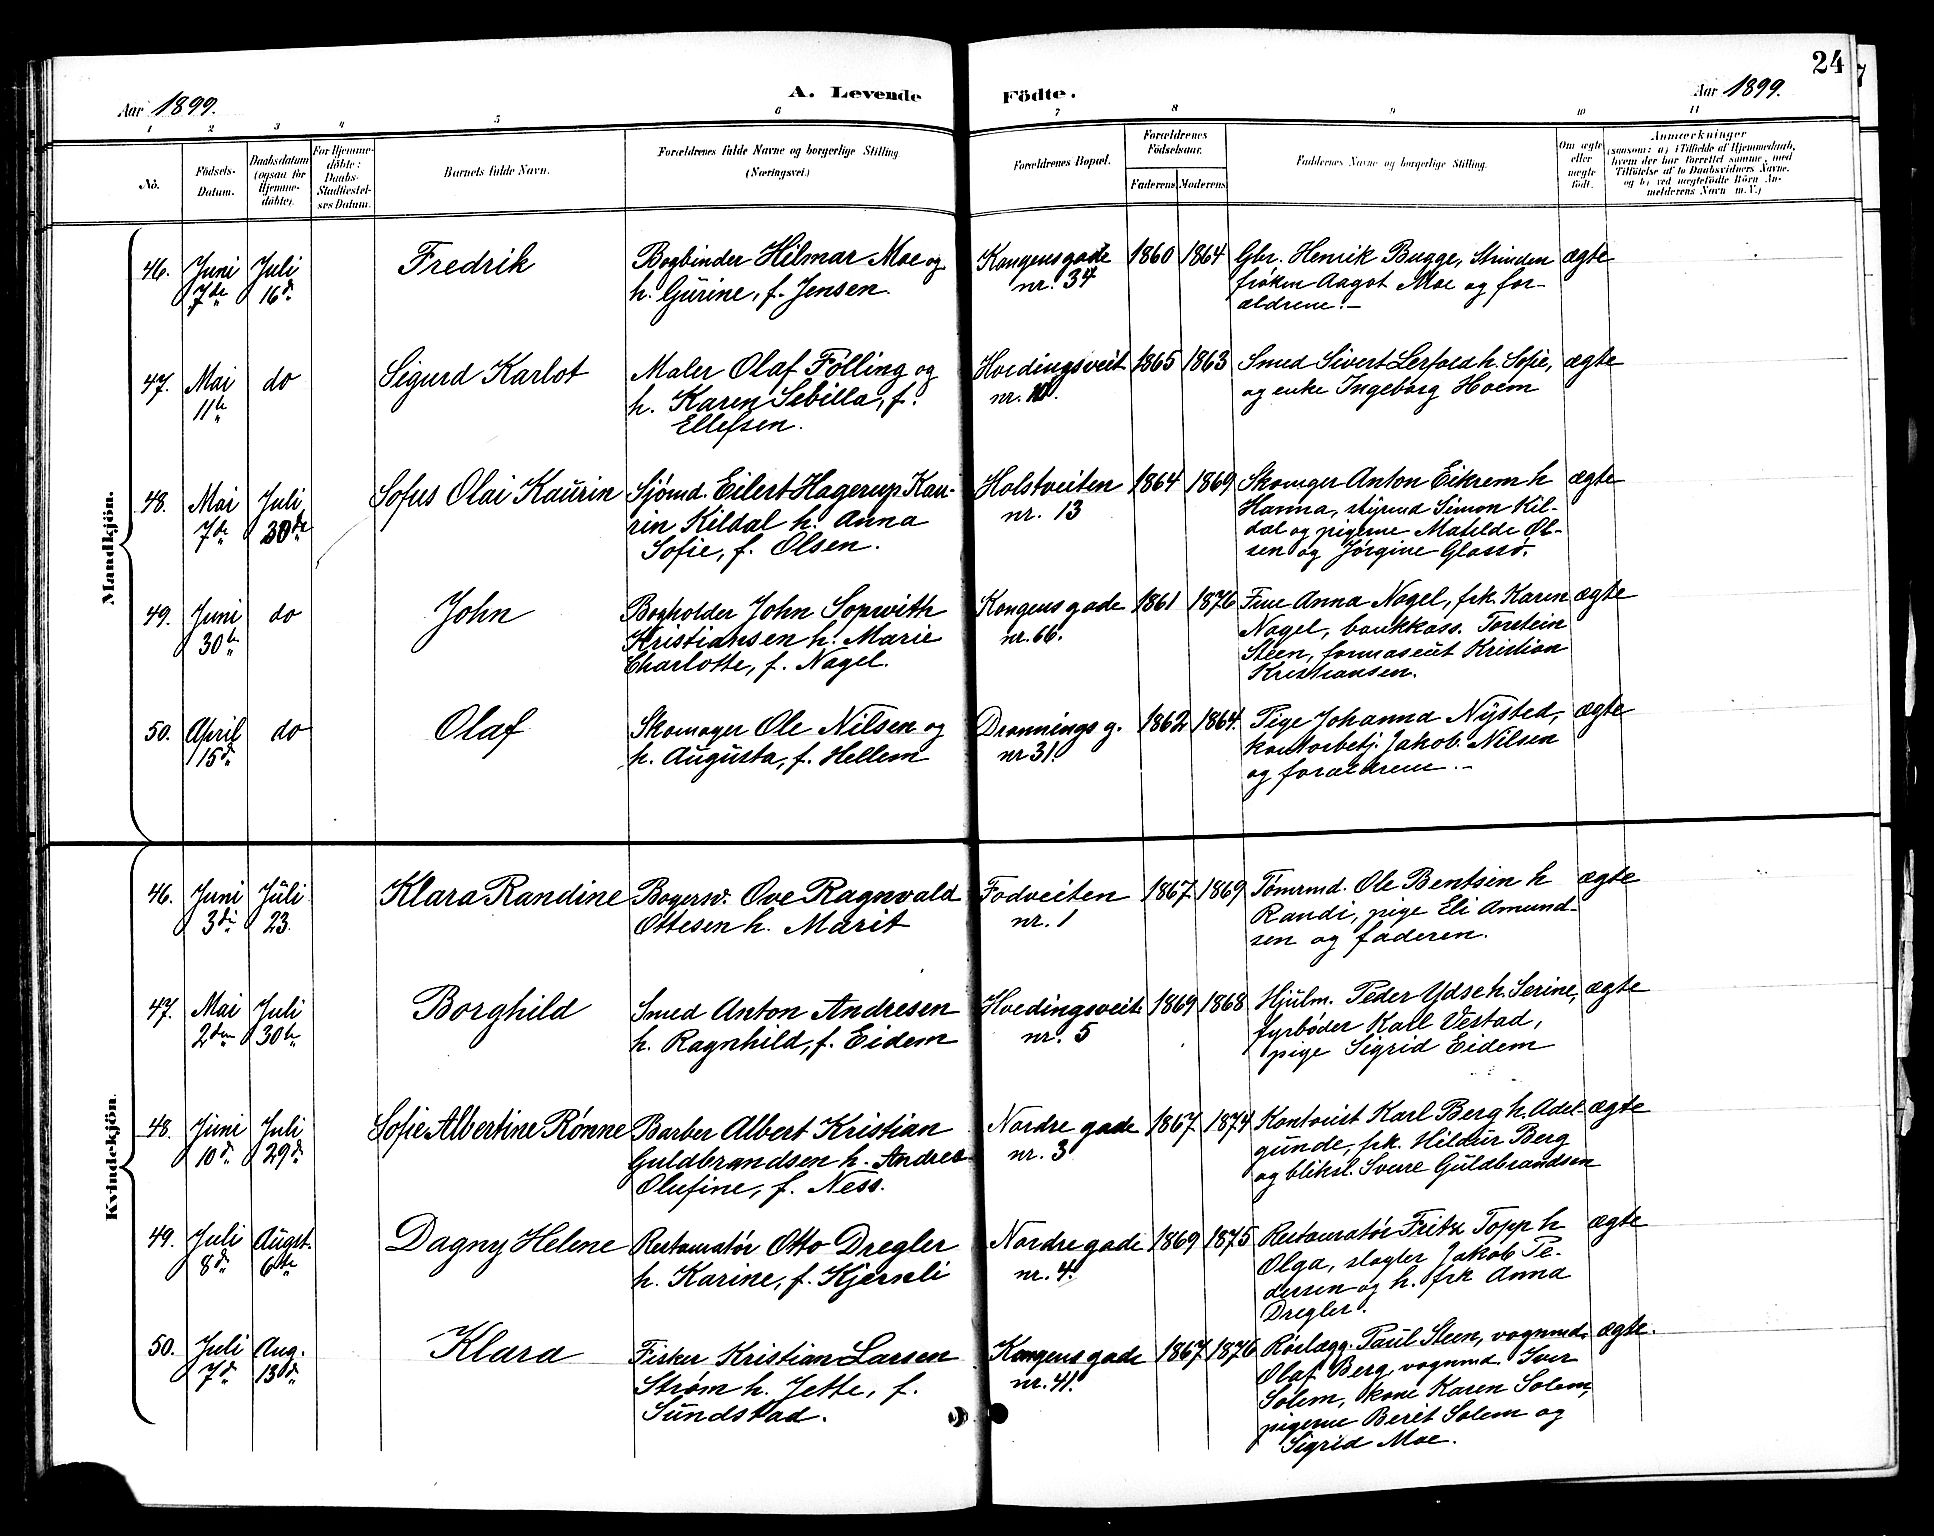 24
Aar 1899.
A. Levende Födte.
Aar 1899.
1 2 3 4 5 6 7 8 9 10 11
No.
Födsels-
Datum.
Daabsdatum
(ogsaa for
Hjemme-
döbte).
For Hjemme-
döbte:
Daabs-
Stadfæstel-
ses Datum.
Barnets fulde Navn.
Forældrenes fulde Navne og borgerlige Stilling
(Næringsvei.)
Forældrenes Bopæl.
Forældrenes
Födselsaar.
Faderens Moderens
Faddernes Navne og borgerlige Stilling.
Om ægte
eller
uægte
født.
Anmærkninger
(saasom: a) i Tilfælde af Hjemmedaab,
hvem der har forrettet samme, med
Tilföielse af to Daabsvidners Navne.
og b) ved uægtefödte Börn An-
melderens Navn m. V.)
Mandkjön.
46. Juni Juli Fredrik Bogbinder Hilmar Moe og Kongensgade 1860 1864 Gbr. Henrik Bugge, Strinden ægte
7de 16d. h. Gurine, f. Jensen nr. 34 frøken Aagot Moe og for-
ældrene.-
47. Mai do Sigurd Karlot Maler Olaf Fölling og Hvedingsveit 1865 1863 Smed Sivert Lerfald h. Sofie, ægte
11te h. Karen Sebilla, f. nr. 10. og enke Ingeborg Hoem
Ellefsen.
48. Mai Juli Sofus Olai Kaurin Sjömd. Eilert Hagerup Kau- Holstveiten 1864 1869 Skomager Anton Eikrem h ægte
7de 30de rin Kildal h. Anna nr. 13 Hanna, styrmd Simon Kil-
Sofie, f. Olsen. dal og pigerne Matilde Ol-
sen og Jørgine Glassö.
49. Juni do John Bogholder John Sopwith Kongens gade 1861 1876 Frue Anna Nagel, frk. Karen ægte
30te Kristiansen h. Marie nr. 66. Nagel, bankkass. Torstein
Charlotte, f. Nagel. Steen, farmaseut Kristian
Kristiansen.
50. April do Olaf Skomager Ole Nilsen og Dronningsg. 1862 1864. Pige Johanna Nysted, ægte
15d. h. Augusta, f. Hellem nr 31. kontorbetj. Jakob Nilsen
og forældrene.-
Kvindekjön.
46. Juni Juli Klara Randine Bogerw. Ove Ragnvald Fodveiten 1867 1869 Tømrmd. Ole Bentsen h ægte
3di 23. Ottesen h. Marit nr. 1 Randi, pige Eli Amund-
sen og faderen.
47. Mai Juli Borghild Smed Anton Andresen Hvedingsveit 1869 1868 Hjulm. Peder Ydse h. Serine, ægte
2den 30te h. Ragnhild, f. Eidem nr. 5 fyrbøder Karl Vestad,
pige Sigrid Eidem
48. Juni Juli Sofie Albertine Rønne Barber Albert Kristian Nordre gade 1867 1874 Kontorist Karl Berg h. Adel- ægte
10d. 29d. Guldbrandsen h. Andrea nr. 3 gunde, frk. Hildur Berg
Olufine, f. Ness. og bliksl. Sverre Guldbrandsen
49. Juli Augst. Dagny Helene Restauratör Otto Dregler Nordre gade 1869 1875 Restauratör Fritz Topp h ægte
8d. 6tte h. Karine, f. Kjerseli nr. 4. Olga, slagter Jakob Pe-
dersen og h. frk Anna
Dregler.
50. Juli Aug. Klara Fisker Kristian Larsen Kongens gade 1867 1876 Rörlægg. Paul Steen, vognmd. ægte.
7d. 13d. Strøm h. Jette, f. nr. 41. Olaf Berg, vognmd. Iver
Sundstad. Solem, kone Karen Solem,
pigerne Berit Solem og
Sigrid Moe.